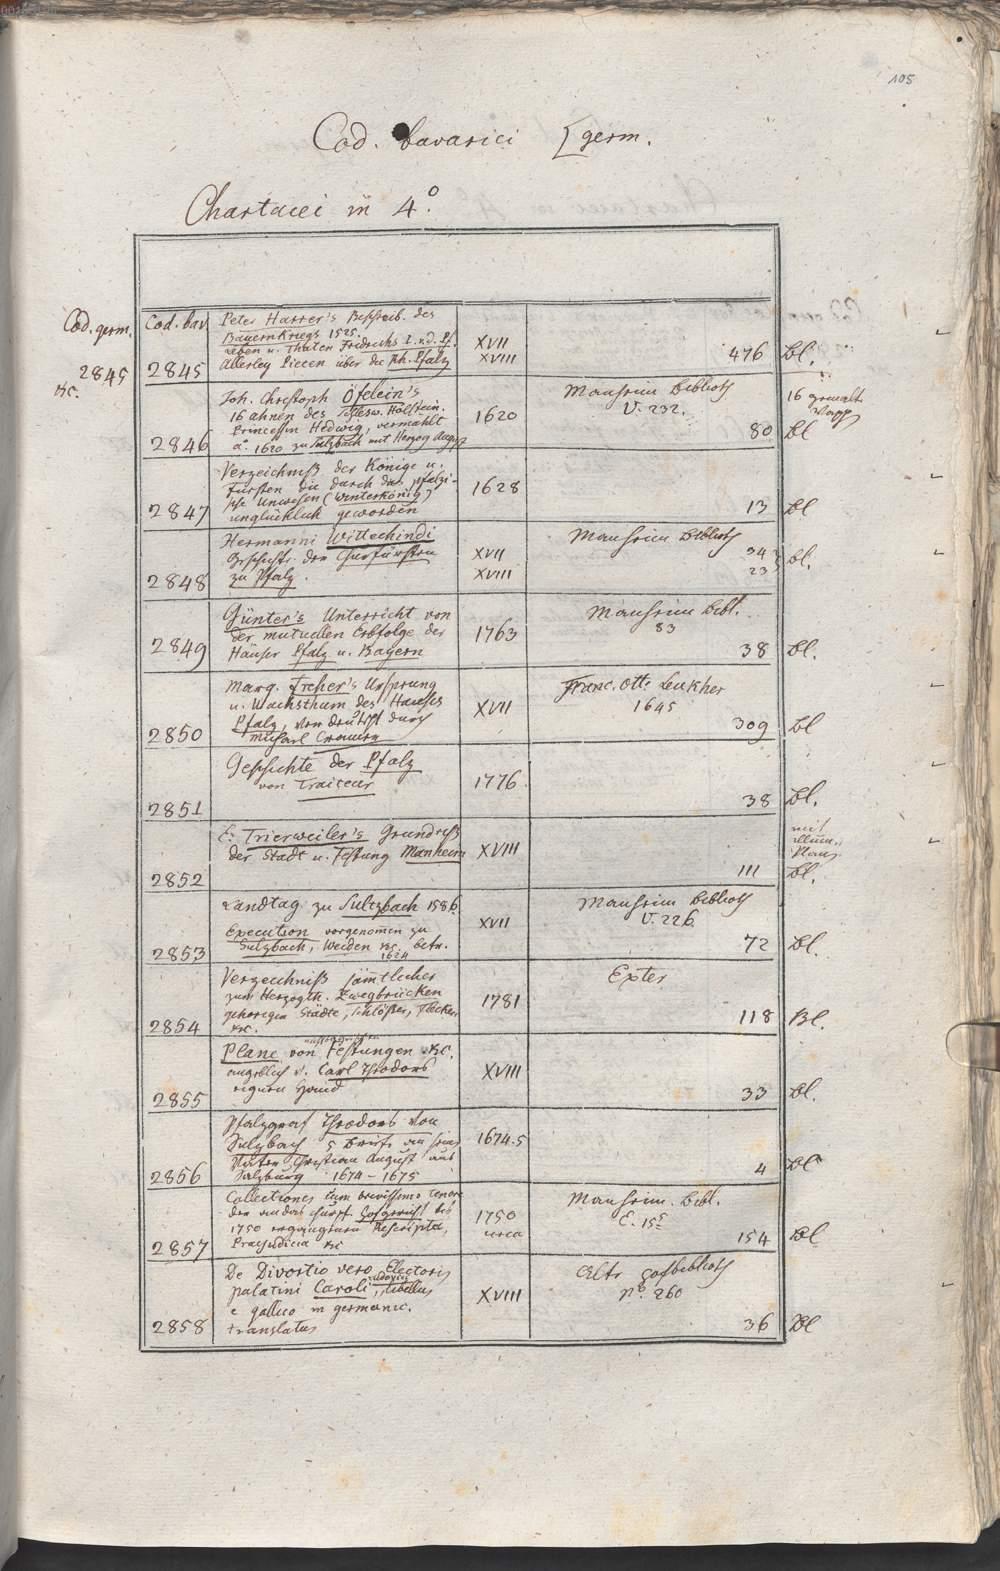 105
Cod. bavarici [germ.
Chartacei in 4º.
Cod. germ.
2845
&c.
Cod. bav.
2845
Peter Harrer's Beschreib. des
BauernKriegs 1525.
Leben u. Thaten Fridrichs I. u. d. Pf.
Allerley Piecen über die Rh. Pfalz
XVII
XVIII
476 Bl.
2846
Joh. Christoph Öfelein's
16 ahnen des Schlesw. Hollstein.
Princessin Hedwig, vermählt
aº. 1620 zu Sulzbach mit Herzog August
1620
Manheim Biblioth
V. 232.
80 Bl
16 gemalte
Wapp
2847
Verzeichniß der Könige u.
Fürsten die durch das pfälzi-
sche Unwesen (Winterkönig)
unglücklich geworden
1628
13 Bl
2848
Hermanni Wittechindi
Geschicht. der Churfürsten
zu Pfalz.
XVII
XVIII
Manheim Biblioth
34
23
Bl.
2849
Günter's Unterricht von
der mutuellen Erbfolge der
Häuser Pfalz u. Bayern
1763
Manheim Bibl.
83
38 Bl.
2850
Marq. Freher's Ursprung
u. Wachsthum des Hauses
Pfalz, verdeutscht durch
Michael
XVII
Franc. Ott. Leukher
1645
309 Bl
2851
Geschichte der Pfalz
von Traiteur
1776
38 Bl.
2852
E. Trierweiler's Grundriß
der Stadt u. Festung Manheim
XVIII
111 Bl.
mit
illum.
Plan
2853
Landtag zu Sultzbach 1586.
Execution vorgenomen zu
Sulzbach, Weiden &c. betr.
1624
XVII
Manheim Biblioth
V. 226.
72 Bl.
2854
Verzeichniß sämtlicher
zum Herzogth. Zweybrücken
gehörigen Städte, Schlößer, Flecken
&c.
1781
Exter
118 Bl.
2855
Plane von Festungen &c.
angeblich v. Carl Theodors
eigner Hand
XVIII
33 Bl.
2856
Pfalzgraf Theodors von
Sulzbach 5 Briefe an seinen
Vater Christian August aus
Salzburg 1674-1675
1674.5
4 Bl
2857
Collectiones cum brevissimo tenore
der an das churpf. Hofgericht bis
1750 ergangenen Rescripta,
Praejudicia &c
1750
circa
Manheim. Bibl.
E. 155
154 Bl
2858
De Divortio vero Electoris
palatini Caroli Ludovici, libellus
e gallico in germanic.
translatus
XVIII
Alte Hofbiblioth
Nº. 260
36 Bl